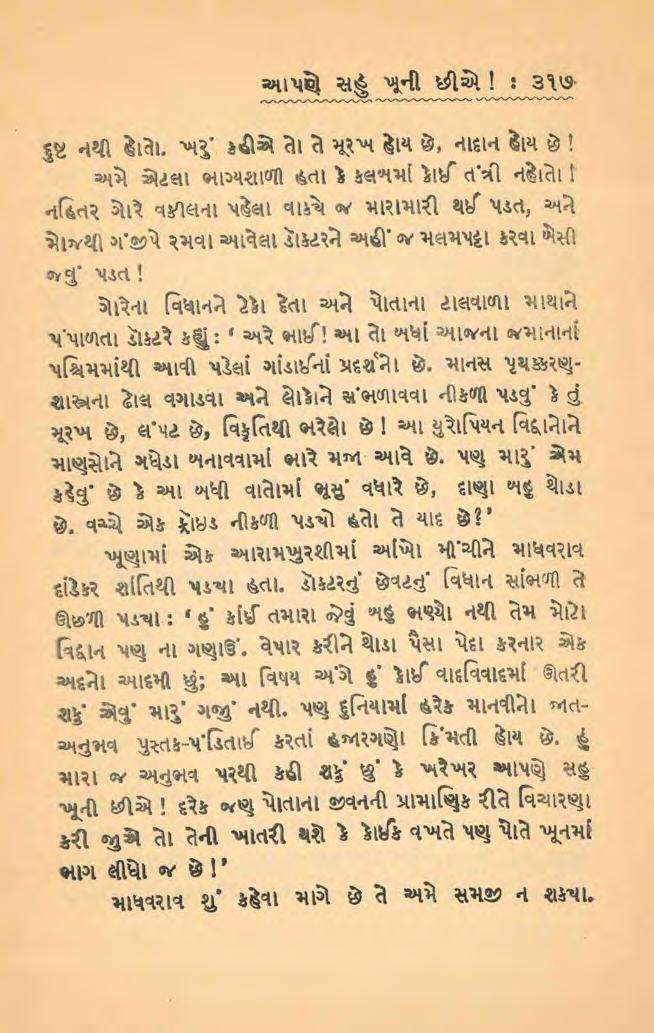 આપણે સહુ ખૂની છીએ! : ૩૧૭
દુષ્ટ નથી હોતો. ખરું કહીએ તો તે મૂરખ હોય છે, નાદાન હોય છે!
અમે એટલા ભાગ્યશાળી હતા કે કલબમાં કોઈ તંત્રી નહોતો!
નહિતર ગોરે વકીલના પહેલા વાકયે જ મારામારી થઈ પડત, અને
મોજથી ગંજીપે રમવા આવેલા ડૉકટરને અહીં જ મલમપટ્ટા કરવા બેસી
જવું પડત!
ગોરેના વિધાનને ટેકો દેતા અને પોતાના ટાલવાળા માથાને
પંપાળતા ડૉકટરે કહ્યું : ‘ અરે ભાઈ! આ તો બધાં આજના જમાનાનાં
પશ્ચિમમાંથી આવી પડેલાં ગાંડાઈનાં પ્રદર્શનો છે. માનસ પૃથક્કરણ-
શાસ્ત્રના ઢોલ વગાડવા અને લોકોને સંભળાવવા નીકળી પડવું કે તું
મૂરખ છે, લંપટ છે, વિકૃતિથી ભરેલો છે! આ યુરોપિયન વિદ્વાનોને
માણસોને ગધેડા બનાવવામાં ભારે મજા આવે છે. પણ મારું એમ
કહેવું છે કે આ બધી વાતોમાં ભૂસું વધારે છે, દાણા બહુ થોડા
છે. વચ્ચે એક ફ્રૉઇડ નીકળી પડયો હતો તે યાદ છે?’
ખૂણામાં એક આરામખુરશીમાં આંખો મીંચીને માધવરાવ
દાંડેકર શાંતિથી પડયા હતા. ડૉકટરનું છેવટનું વિધાન સાંભળી તે
ઊછળી પડયા : ‘ હું કાંઈ તમારા જેવું બહુ ભણ્યો નથી તેમ મોટો
વિદ્વાન પણ ના ગણાઉં. વેપાર કરીને થોડા પૈસા પેદા કરનાર એક
અદનો આદમી છું; આ વિષય અંગે હું કોઈ વાદવિવાદમાં ઊતરી
શકું એવું મારું ગજું નથી. પણ દુનિયામાં હરેક માનવીનો જાત-
અનુભવ પુસ્તક-પંડિતાઈ કરતાં હજારગણો કિંમતી હોય છે. હું
મારા જ અનુભવ પરથી કહી શકું છું કે ખરેખર આપણે સહુ
ખૂની છીએ! દરેક જણ પોતાના જીવનની પ્રામાણિક રીતે વિચારણા
કરી જુએ તો તેની ખાતરી થશે કે કોઈક વખતે પણ પોતે ખૂનમાં
ભાગ લીધો જ છે!’
માધવરાવ શું કહેવા માગે છે તે અમે સમજી ન શકયા.